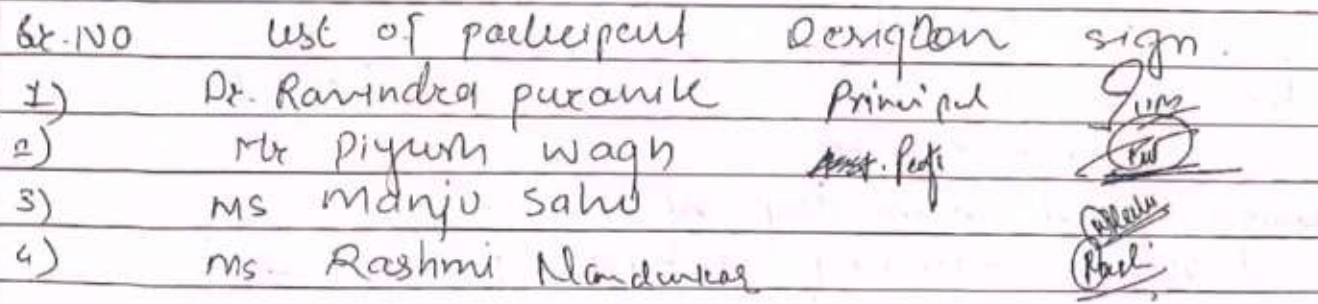 Sr. NO List of participant Desigtion sign.
1) Dr. Ravindra puranik Principal
2) Mr Piyush wagh Asst. Prof
3) MS Manju Sahu
4) ms. Rashmi Nandurkar